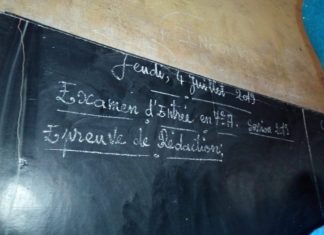 Jeudi, 4 Juillet 2019
Examen d'Entrée en 7è A. Session 2019
Epreuve de Rédaction.